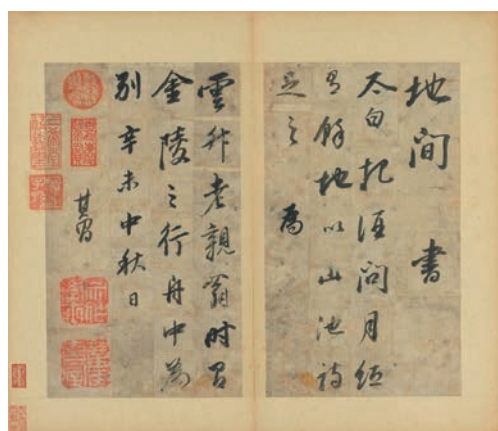 地間 書
太白把酒問月紙
有餘地以山池詩
足之 為
雲升老親翁時有
金陵之行舟中為
別辛未中秋日
其昌